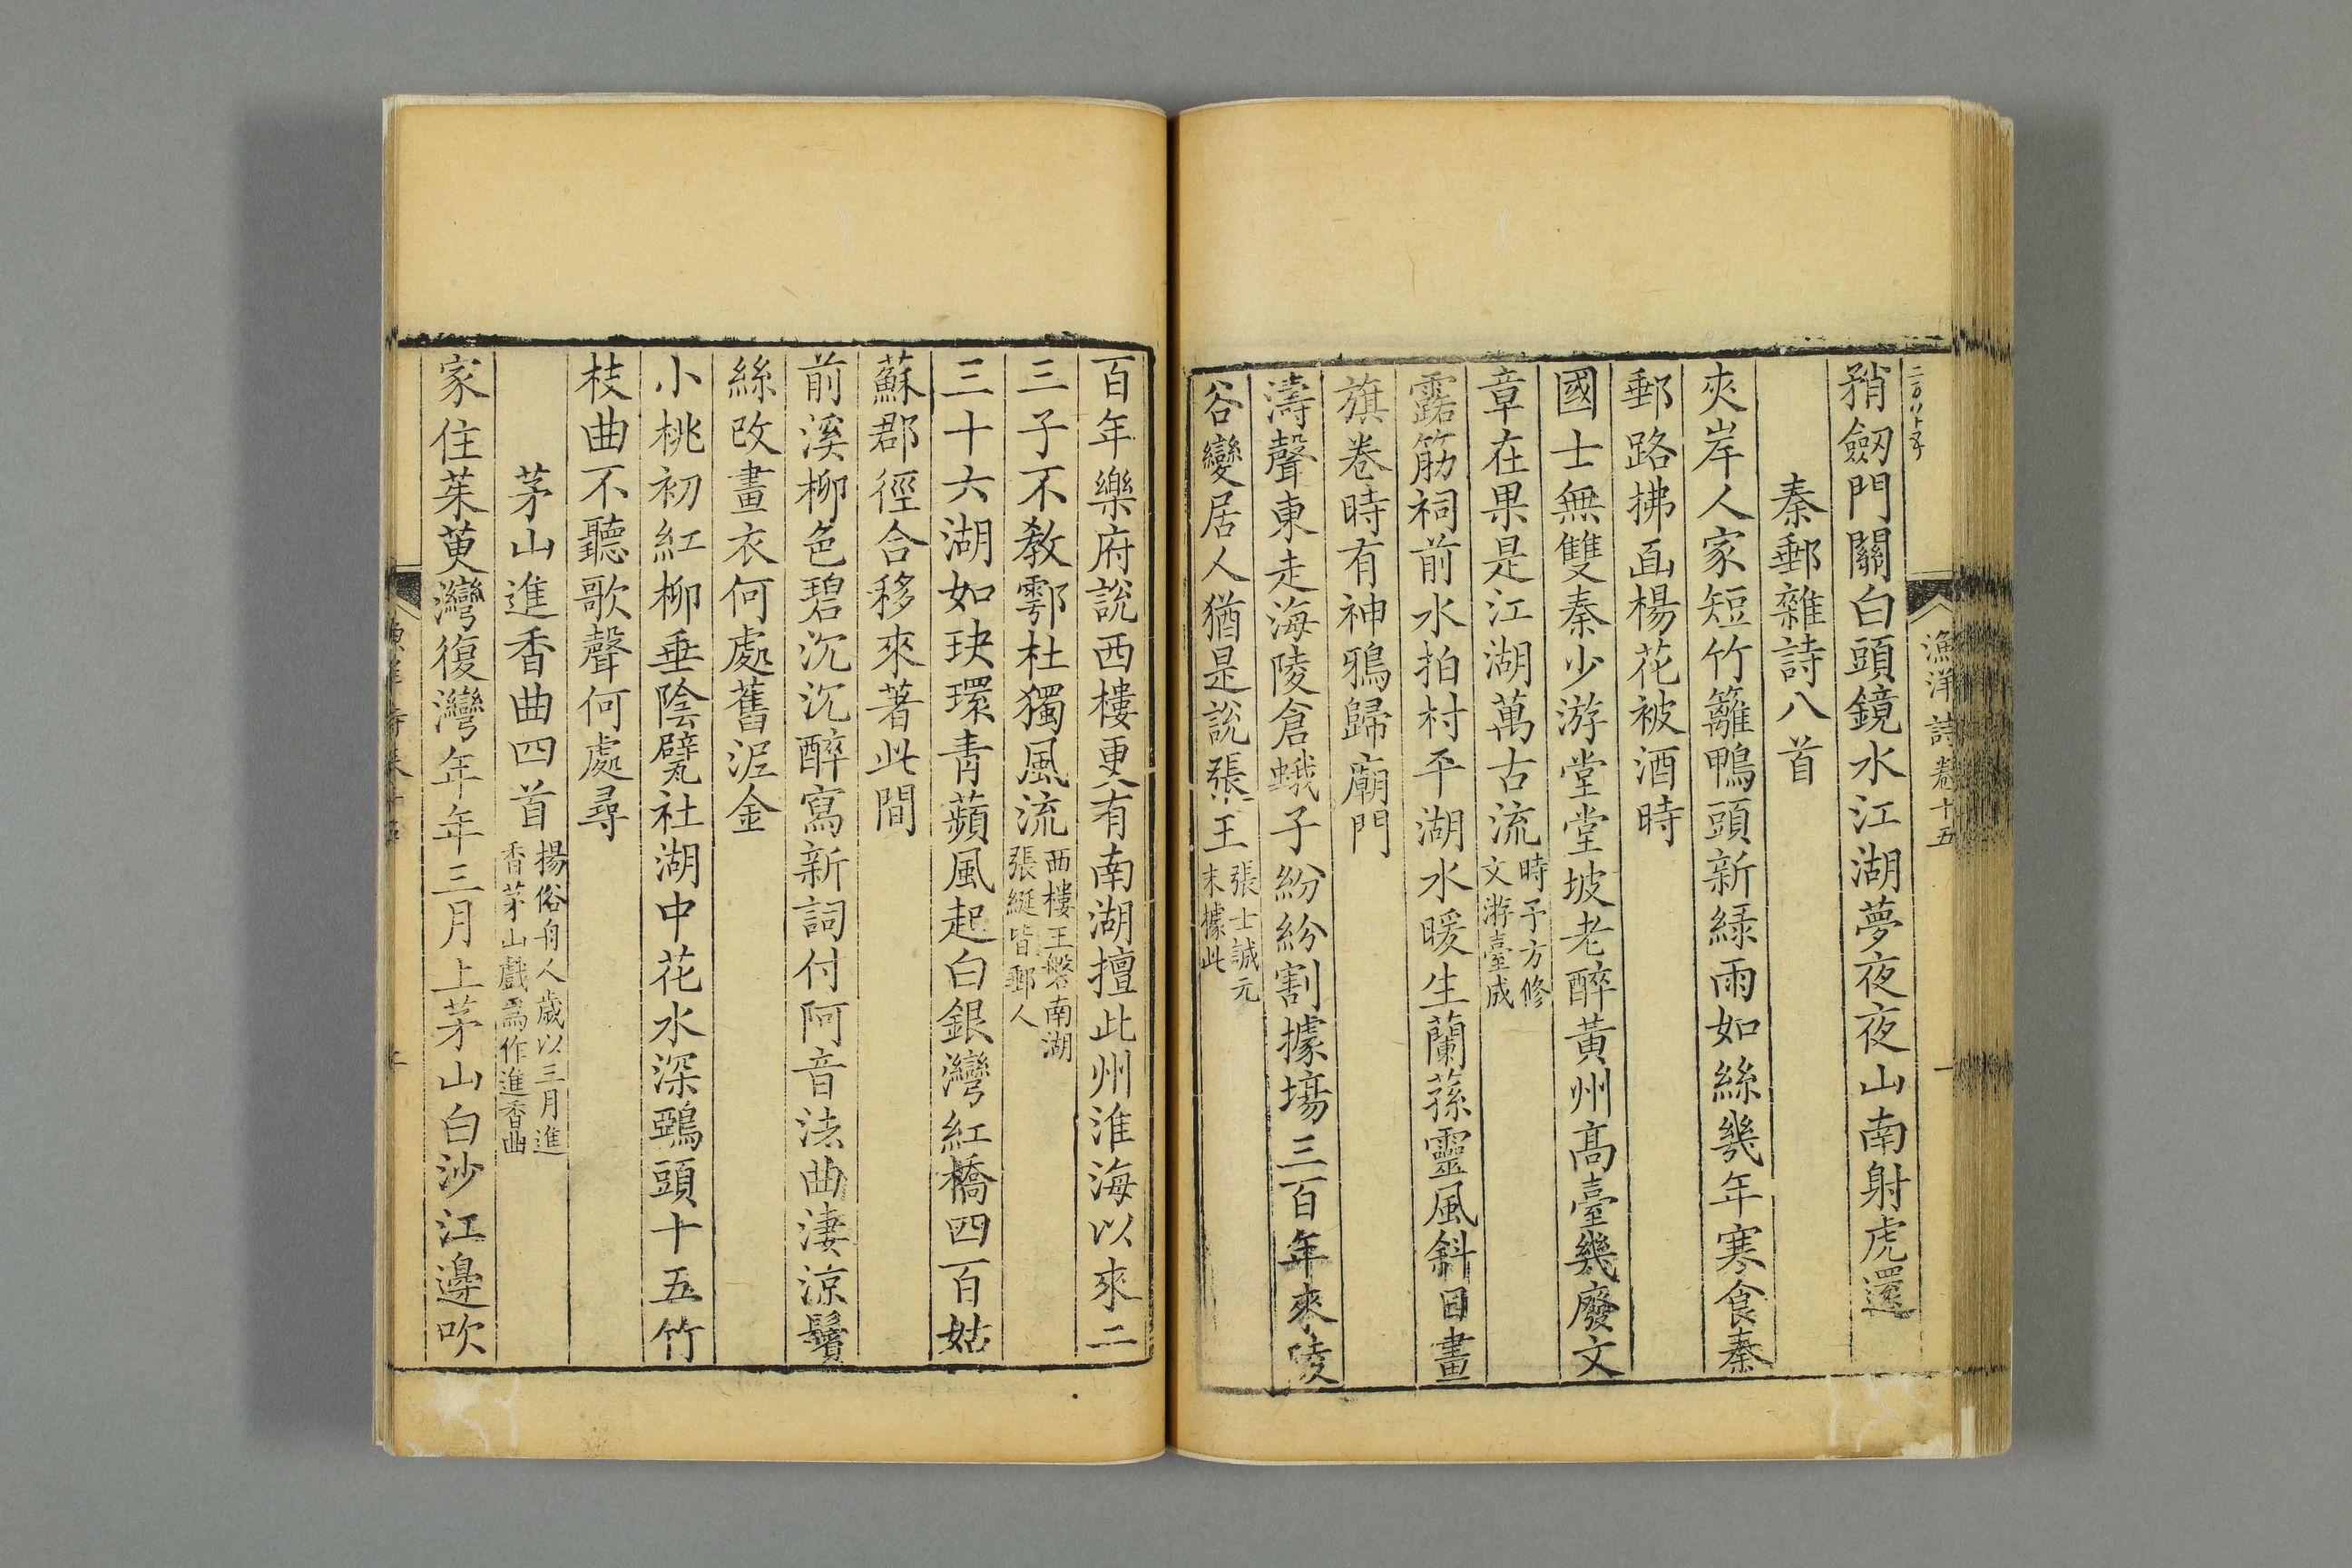 矟劔門關白頭鏡水江湖夢夜夜山南射虎還
秦郵雜詩八首
夾岸人家短竹籬鴨頭新緑雨如絲幾年寒食秦
郵路拂面楊花被酒時
國士無雙秦少游堂堂坡老醉黃州高臺幾廢文
章在果是江湖萬古流
時予方修
文游臺成
露筋祠前水拍村平湖水暖生蘭蓀靈風斜日畫
旗卷時有神鴉歸廟門
濤聲東走海陵倉蛾子紛紛割據場三百年來陵
谷變居人猶是說張王
張士誠元
末據此
漁洋詩卷十五
一
百年樂府說西樓更有南湖擅此州淮海以來二
三子不教鄠杜獨風流
西樓王磐南湖
張綖皆郵人
三十六湖如玦環青蘋風起白銀灣紅橋四百姑
蘇郡徑合移來著此間
前溪柳色碧沉沉醉寫新詞付阿音法曲淒涼鬢
絲改畫衣何處舊泥金
小桃初紅柳垂陰甓社湖中花水深鵶頭十五竹
枝曲不聽歌聲何處尋
茅山進香曲四首
揚俗舟人歲以三月進
香茅山戲爲作進香曲
家住茱萸灣復灣年年三月上茅山白沙江邊吹